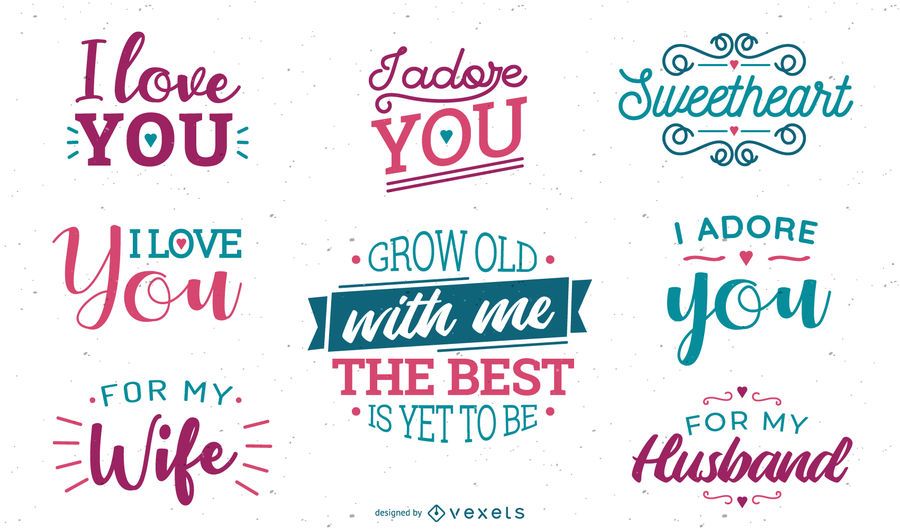 I love
YOU
I adore
YOU
Sweetheart
I LOVE
You
GROW OLD
with me
THE BEST
IS YET TO BE
I ADORE
you
FOR MY
Wife
FOR MY
Husband
designed by vexels